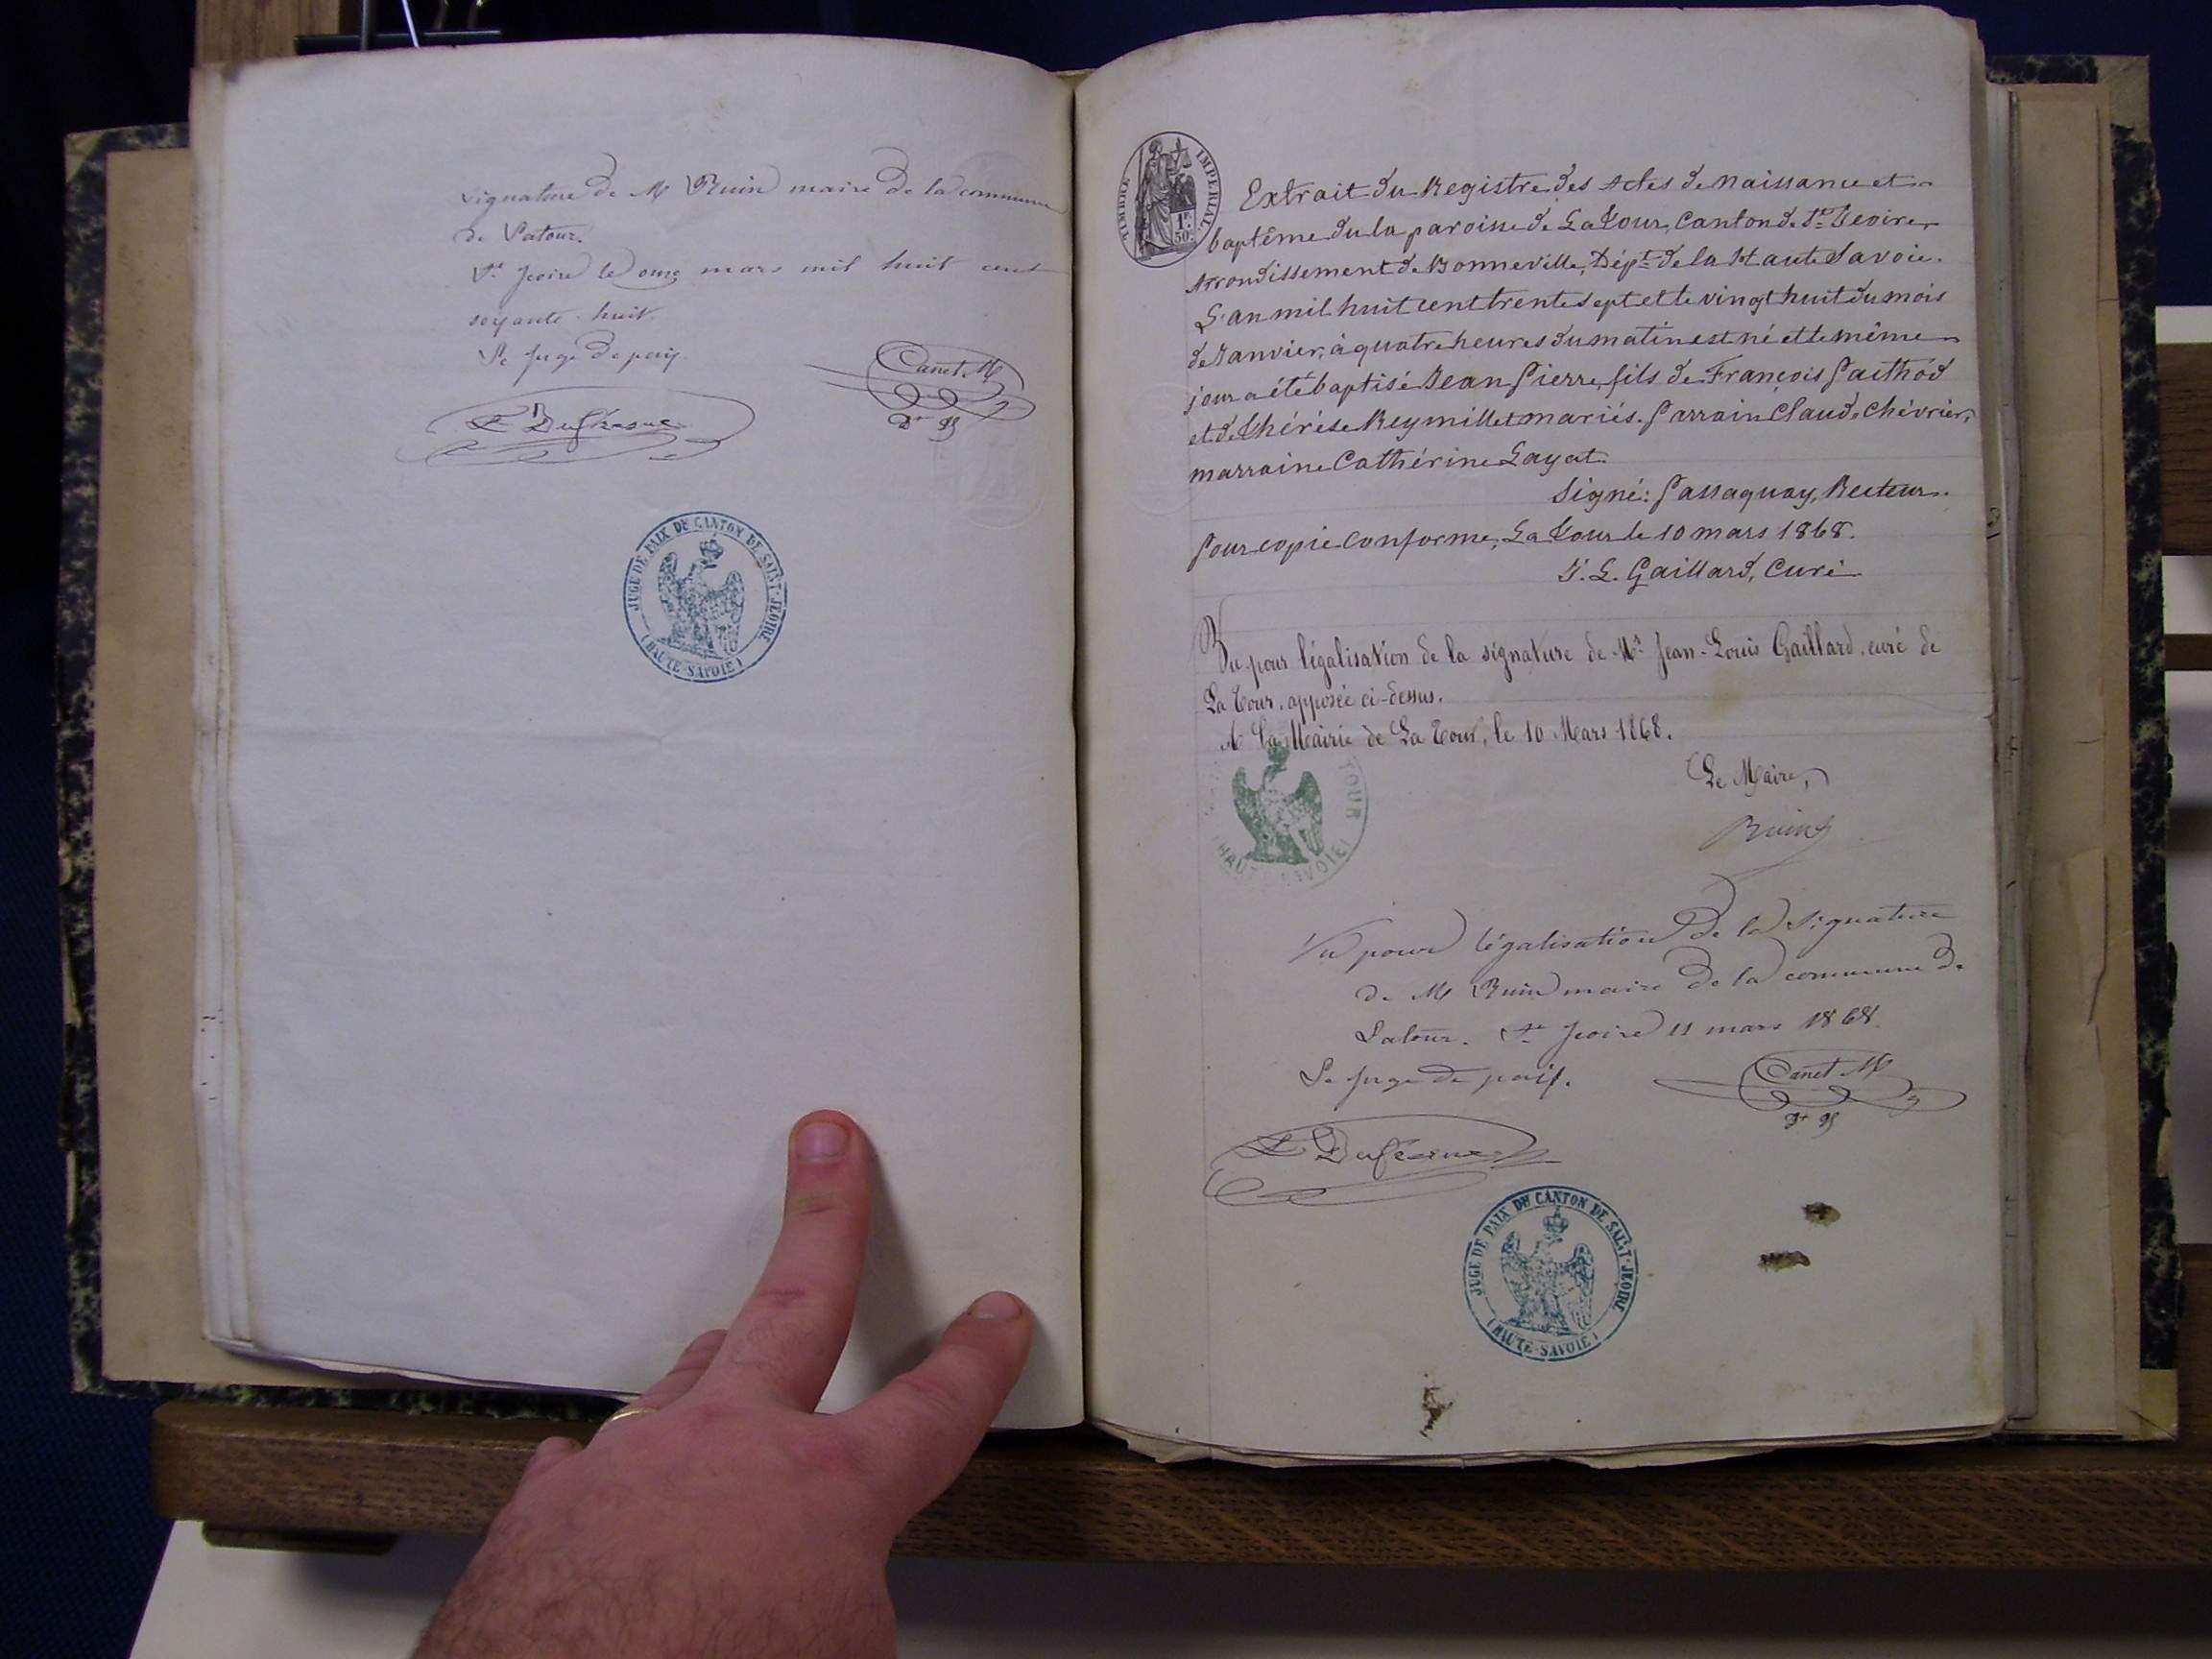 signature de M Ruin maire de la commune
de Latour.
St Jeoire le onze mars mil huit cent
soixante huit.
Le juge de paix.
Canet M
Dufresne
JUGE DE PAIX DU CANTON DE SAINT-JEOIRE
(HAUTE-SAVOIE)
TIMBRE IMPERIAL
1F
50c
Extrait du Registre des Actes de naissance et
baptême du la paroisse de La Tour, Canton de St Jeoire,
Arrondissement de Bonneville, Dépt de la Haute Savoie.
L'an mil huit cent trente sept et le vingt huit du mois
de Janvier, à quatre heures du matin est né et le même
jour a été baptisé Jean Pierre, fils de François Paithod
et de Thérèse Reymillet mariés. Parrain Claude Chévrier,
marraine Cathérine Layat.
Signé: Passaquay, Recteur.
Pour copie conforme, La Tour le 10 mars 1868.
J. L. Gaillard, Curé
Vu pour légalisation de la signature de Mr Jean-Louis Gaillard, curé de
La Tour, apposée ci-dessus.
A la Mairie de La Tour, le 10 Mars 1868.
Le Maire,
Ruin
TOUR
(HAUTE SAVOIE)
Vu pour légalisation de la signature
de M Ruin maire de la commune de
Latour. St Jeoire 11 mars 1868.
Le juge de paix.
Canet M
Dufresne
JUGE DE PAIX DU CANTON DE SAINT-JEOIRE
(HAUTE-SAVOIE)